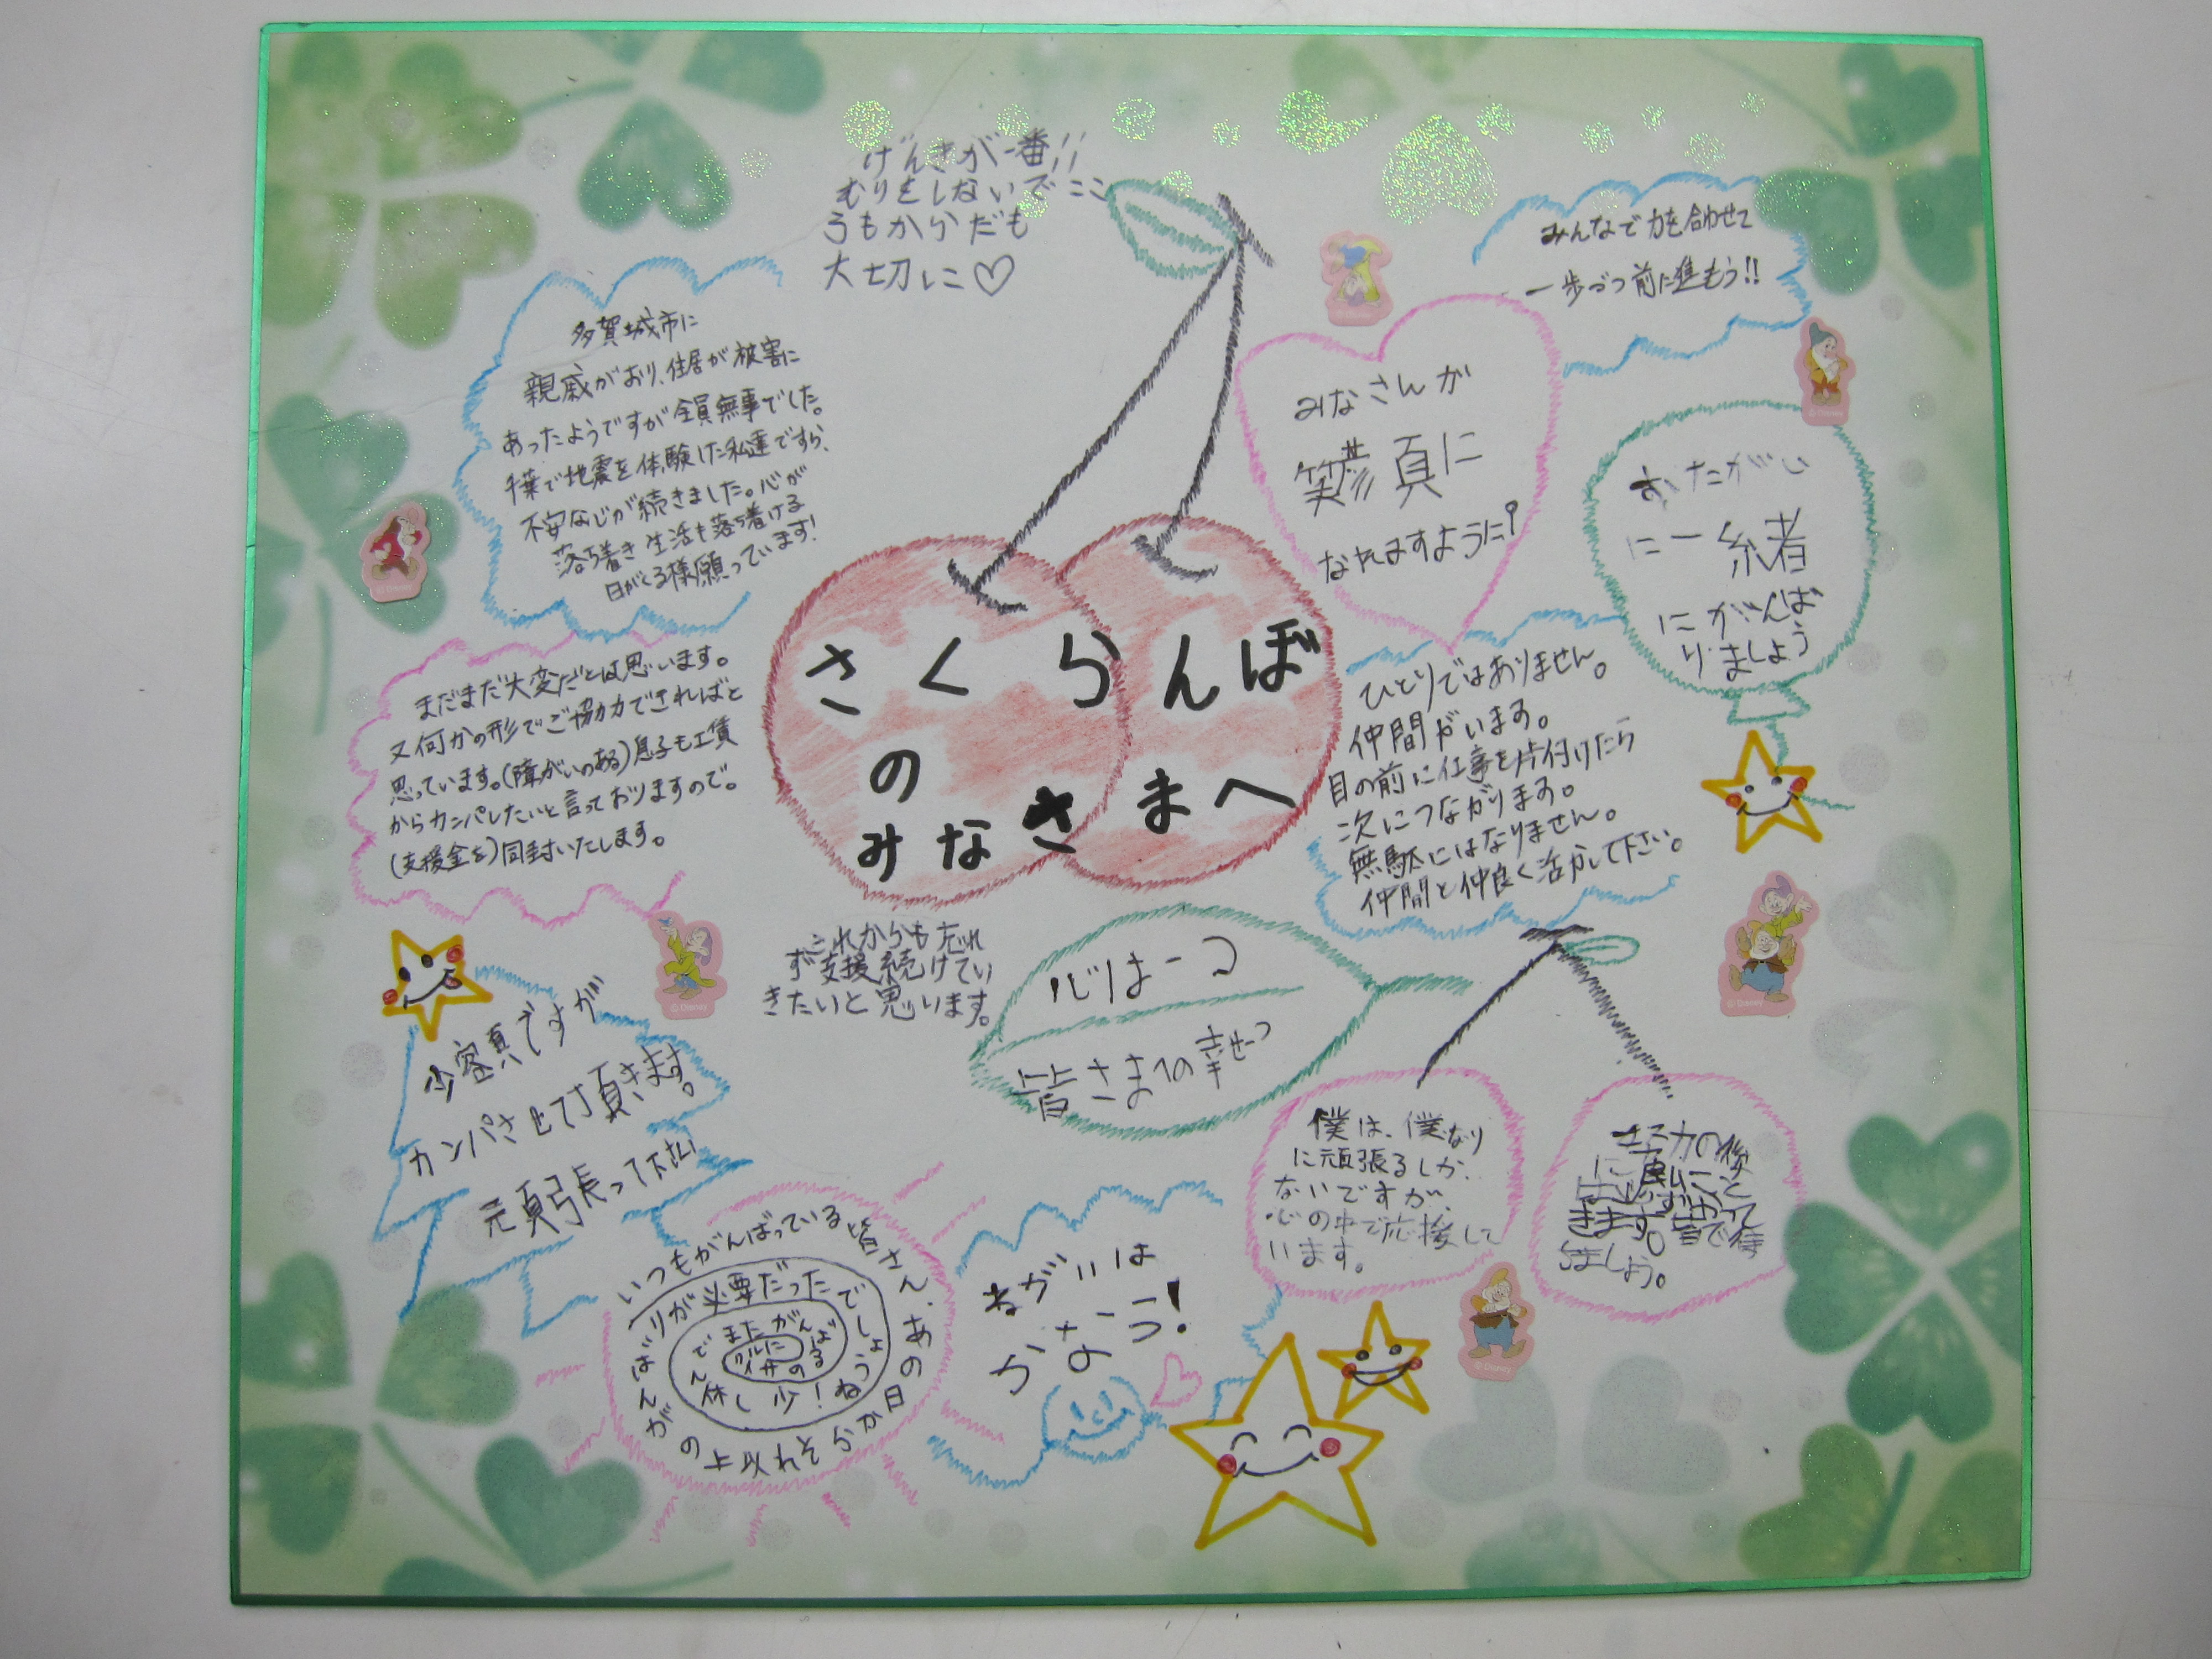 げんきが一番!!
むりをしないでここ
ろもからだも
大切に♡
みんなで力を合わせて
一歩づつ前に進もう!!
多賀城市に
親戚がおり、住居が被害に
あったようですが全員無事でした。
千葉で地震を体験した私達ですら、
不安なじが続きました。心が
落ち着き生活も落ち着ける
日がくる様願っています!
みなさんが
笑顔に
なれますように!
おたがい
に一緒
にがんば
りましょう
さくらんぼ
の
みなさまへ
まだまだ大変だとは思います。
又何かの形でご協力できればと
思っています。(障がいのある)息子も工賃
からカンパしたいと言っておりますので。
(支援金を)同封いたします。
ひとりではありません。
仲間がいます。
目の前に仕事を片付けたら
次につながります。
無駄にはなりません。
仲間と仲良く活かして下さい。
これからも忘れ
ず支援続けてい
きたいと思います。
心は一つ
皆さまへの幸せつ
少額ですが
カンパさせて頂きます。
元頑張って下さい
僕は、僕なり
に頑張るしか、
ないですが、
心の中で応援して
います。
努力の後
待
ちましょう。
いつもがんばっている皆さん、あの日からそれ以上のがんばりが必要だったでしょうね!少し休んでまたがんばるの
ねがいは
かなう!